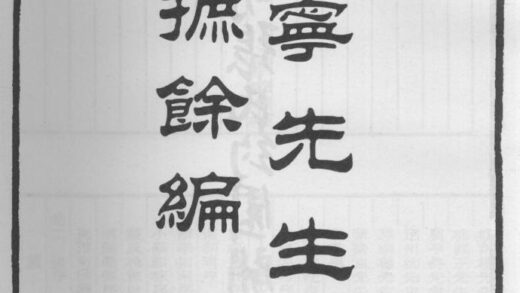 寧先生
摭餘編